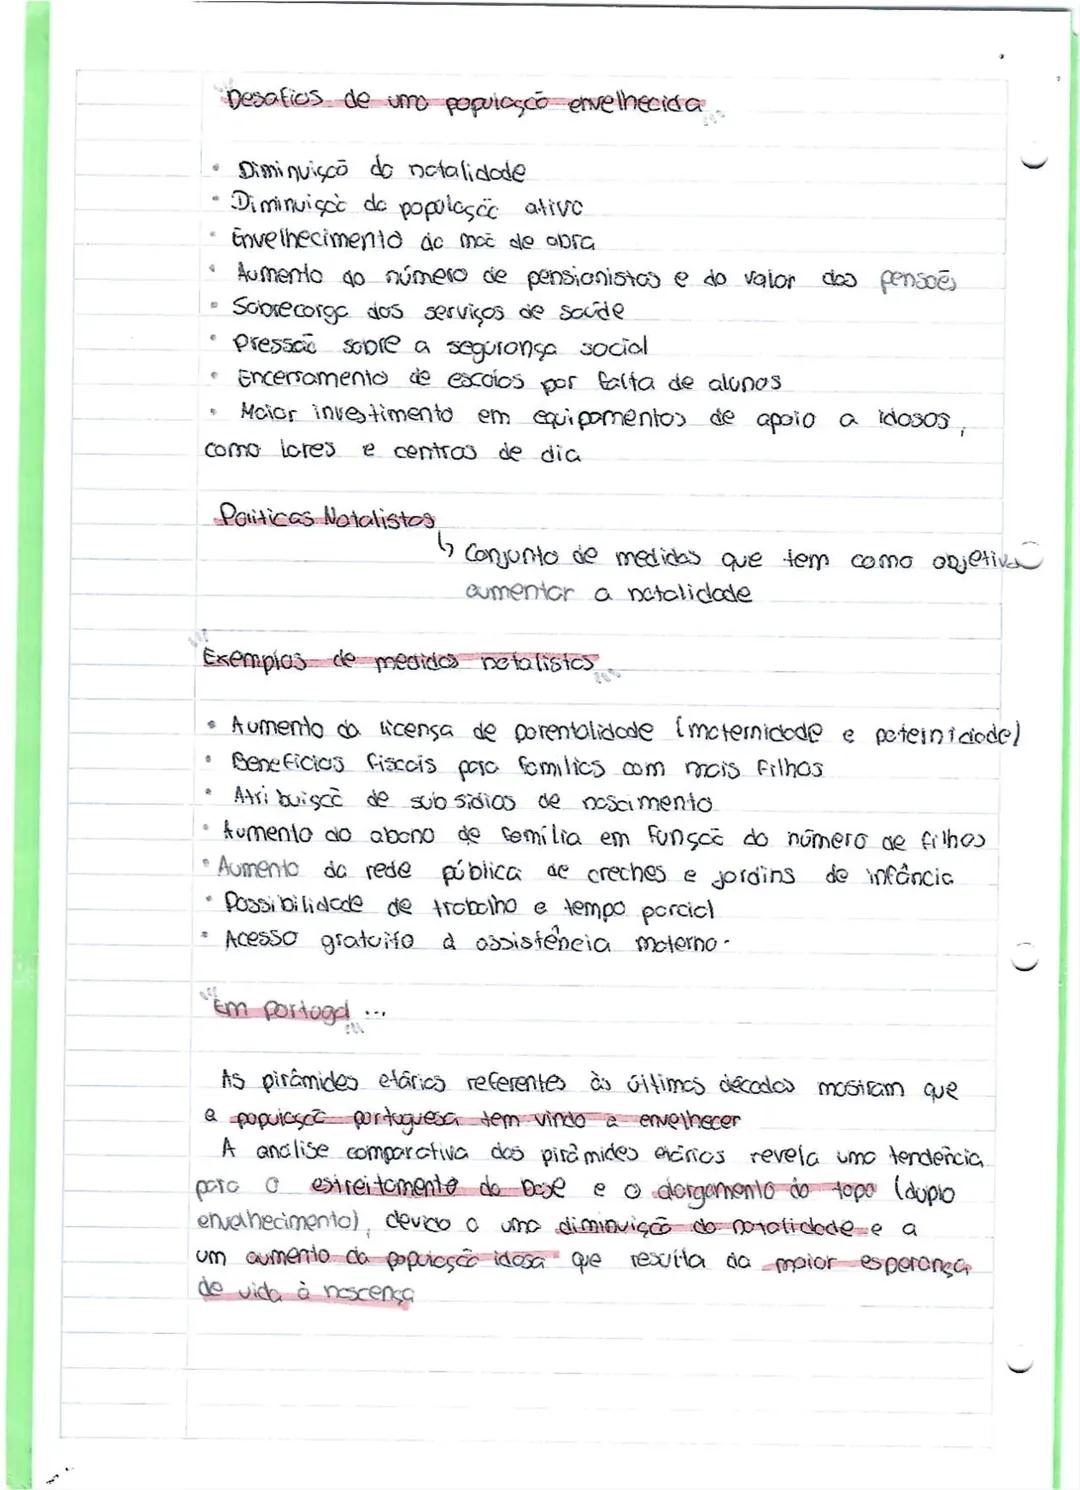 Desafios de uma população envelhecida
• Diminuição da natalidade
• Diminuição da população ativa
• Envelhecimento da mão de obra
• Aumento do número de pensionistas e do valor das pensões
• Sobrecarga dos serviços de saúde
• Pressão sobre a segurança social
• Encerramento de escolas por falta de alunos
• Maior investimento em equipamentos de apoio a idosos,
como lares e centros de dia
Políticas Natalistas
↳ Conjunto de medidas que tem como objetivo
aumentar a natalidade
Exemplos de medidas natalistas
• Aumento da licença de parentalidade (maternidade e paternidade)
• Benefícios fiscais para famílias com mais filhos
• Atribuição de subsídios de nascimento
• Aumento do abono de família em função do número de filhos
• Aumento da rede pública de creches e jardins de infância
• Possibilidade de trabalho e tempo parcial
• Acesso gratuito à assistência materno-
Em Portugal ...
As pirâmides etárias referentes às últimas décadas mostram que
a população portuguesa tem vindo a envelhecer
A análise comparativa das pirâmides etárias revela uma tendência
para o estreitamento da base e o alargamento do topo (duplo
envelhecimento), devido a uma diminuição da natalidade e a
um aumento da população idosa que resulta da maior esperança
de vida à nascença